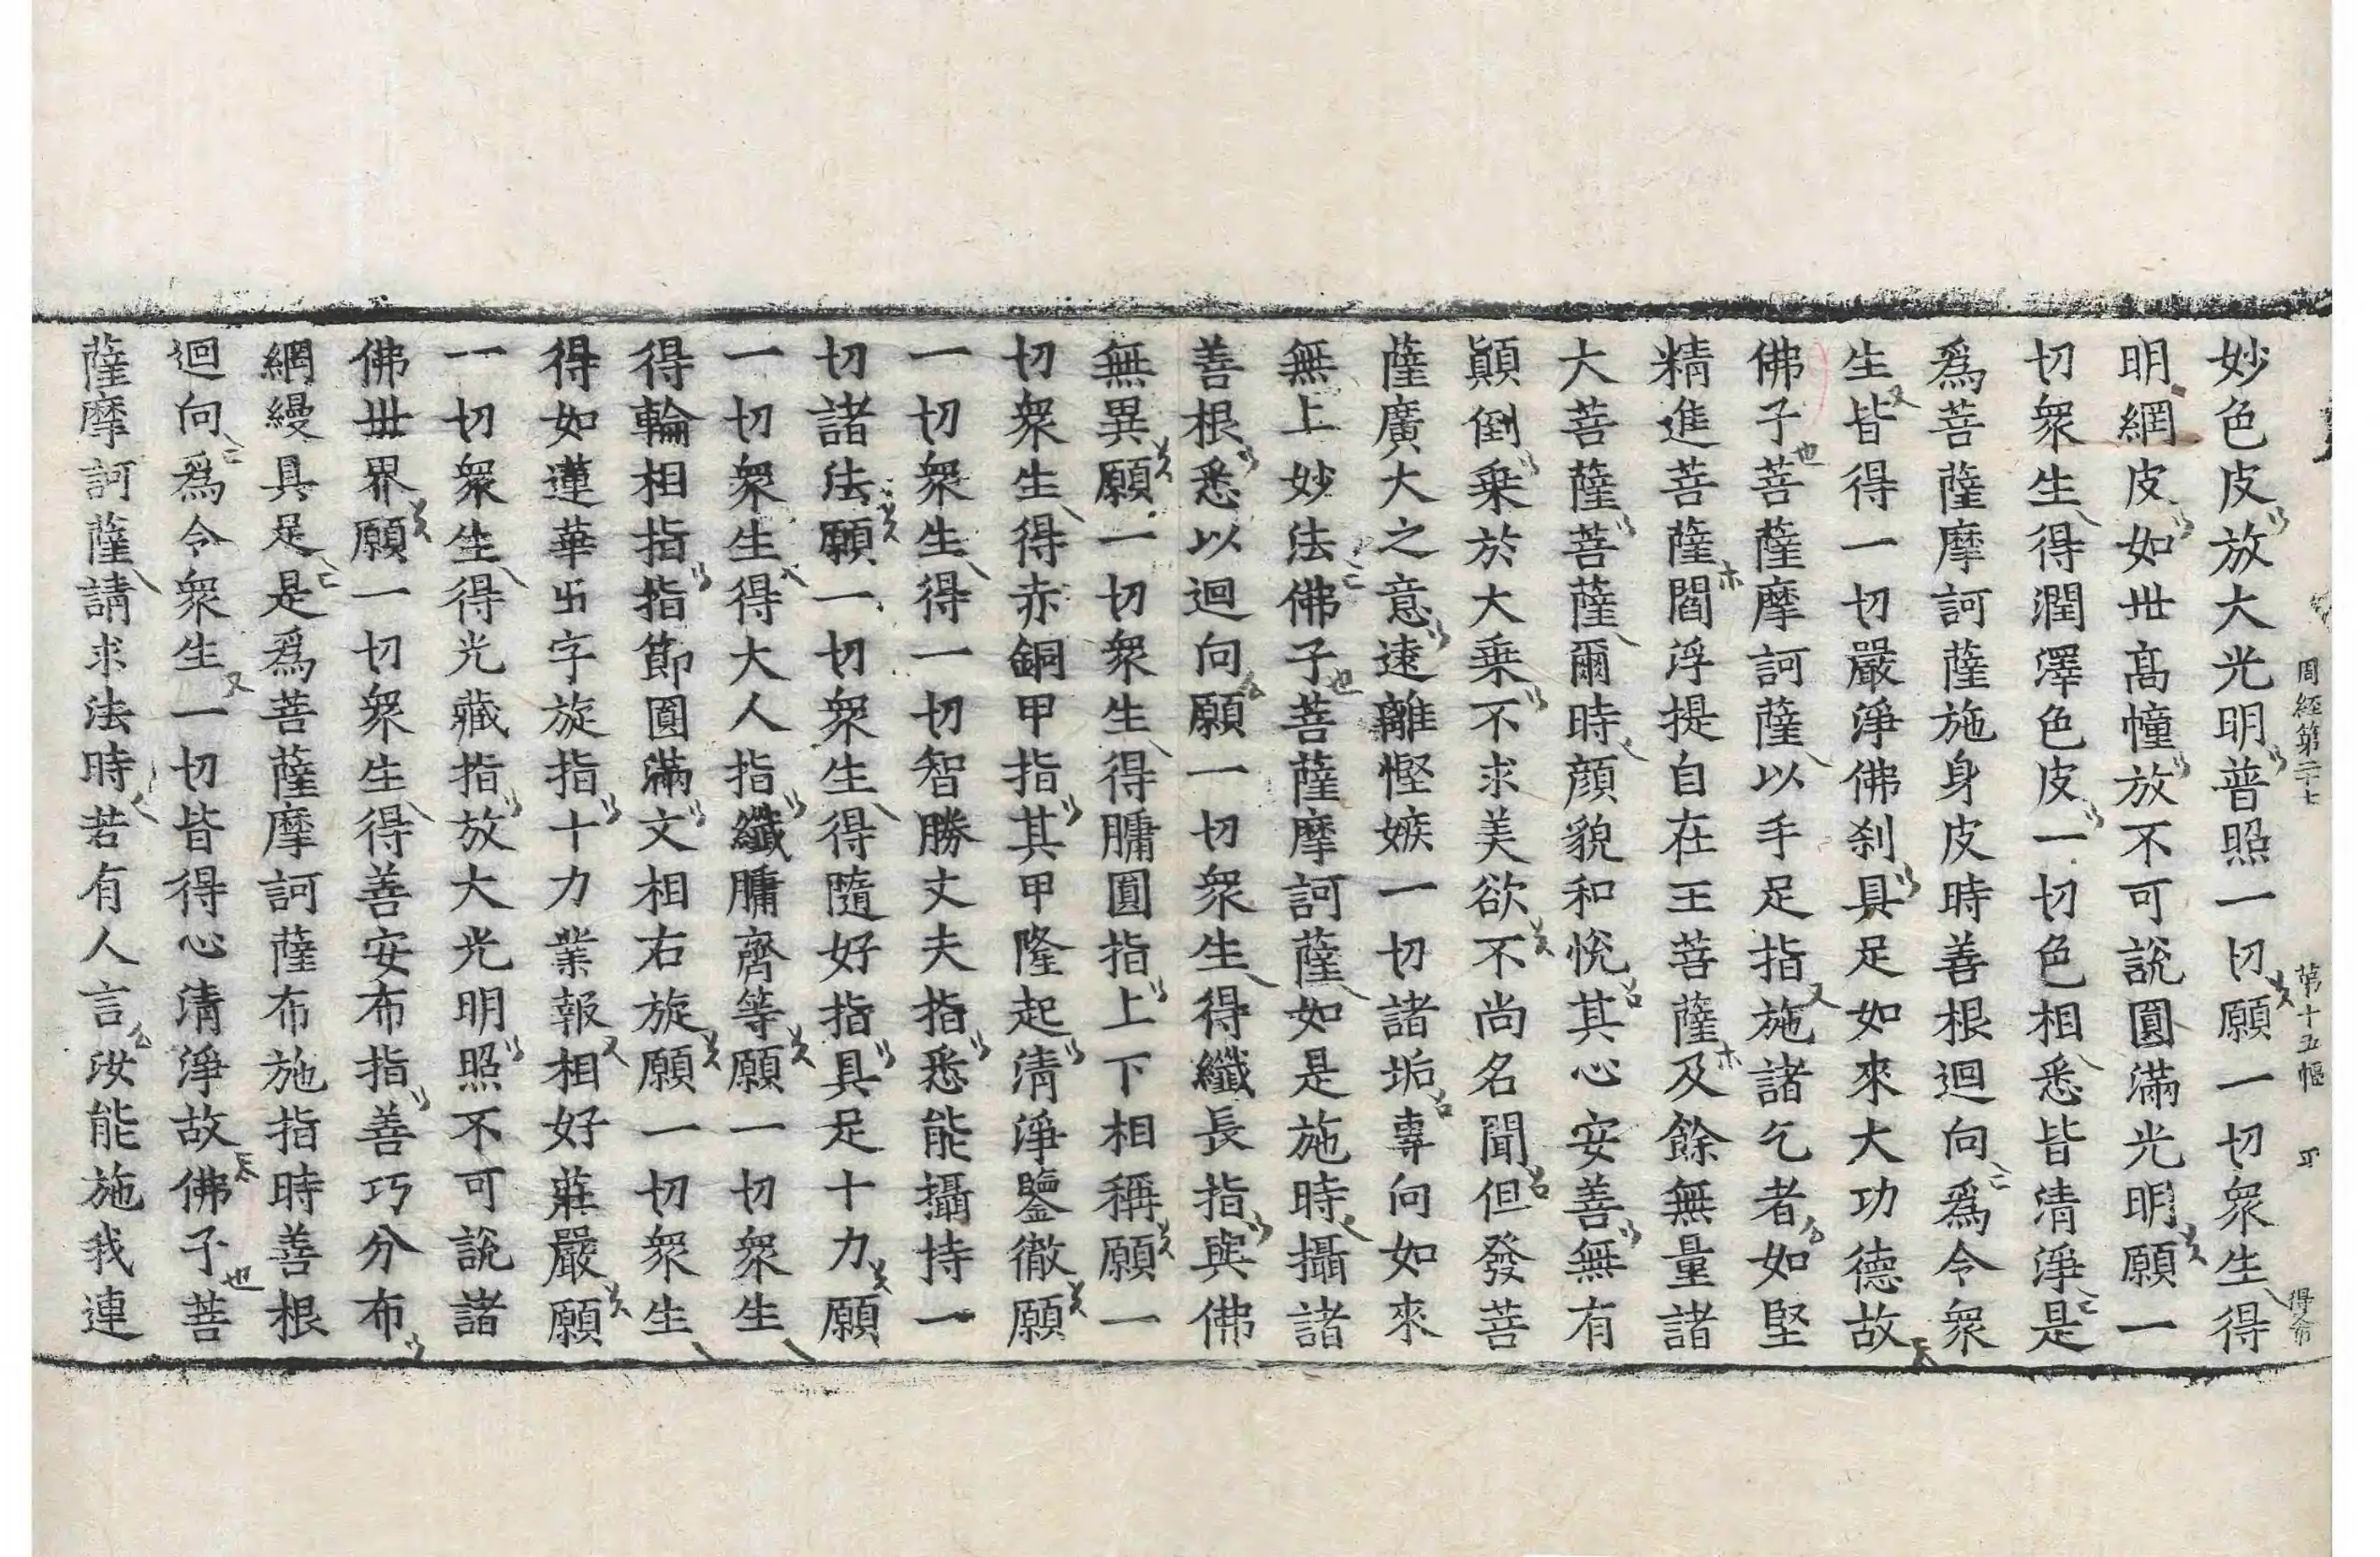 周経第二十七　第十五幅　得布
妙色皮放大光明普照一切願一切衆生得
明網皮如丗髙幢放不可說圓滿光明願一
切衆生得潤澤色皮一切色相悉皆清淨是
爲菩薩摩訶薩施身皮時善根迴向爲令衆
生皆得一切嚴淨佛刹具足如來大功德故
佛子菩薩摩訶薩以手足指施諸乞者如堅
精進菩薩閻浮提自在王菩薩及餘無量諸
大菩薩菩薩爾時顔貌和悅其心安善無有
顚倒乗於大乗不求美欲不尚名聞但發菩
薩廣大之意遠離慳嫉一切諸垢專向如來
無上妙法佛子菩薩摩訶薩如是施時攝諸
善根悉以迴向願一切衆生得纖長指與佛
無異願一切衆生得𦟛圓指上下相稱願一
切衆生得赤銅甲指其甲隆起清淨鑒徹願
一切衆生得一切智勝丈夫指悉能攝持一
切諸法願一切衆生得隨好指具足十力願
一切衆生得大人指纖𦟛齊等願一切衆生
得輪相指指節圓滿文相右旋願一切衆生
得如蓮華卐字旋指十力業報相好莊嚴願
一切衆生得光藏指放大光明照不可說諸
佛丗界願一切衆生得善安布指善巧分布
網縵具足是爲菩薩摩訶薩布施指時善根
迴向爲令衆生一切皆得心清淨故佛子菩
薩摩訶薩請求法時若有人言汝能施我連